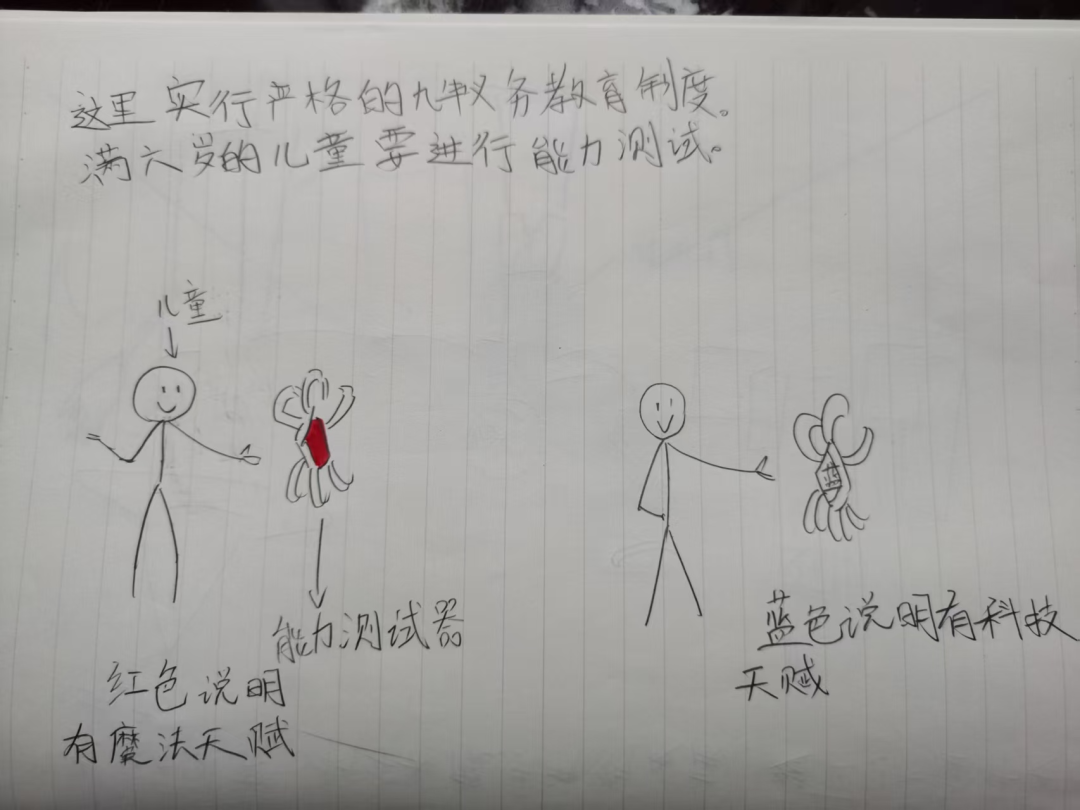 这里实行严格的九年义务教育制度。
满六岁的儿童要进行能力测试。
儿童
蓝
能力测试器
红色说明
有魔法天赋
蓝色说明有科技
天赋